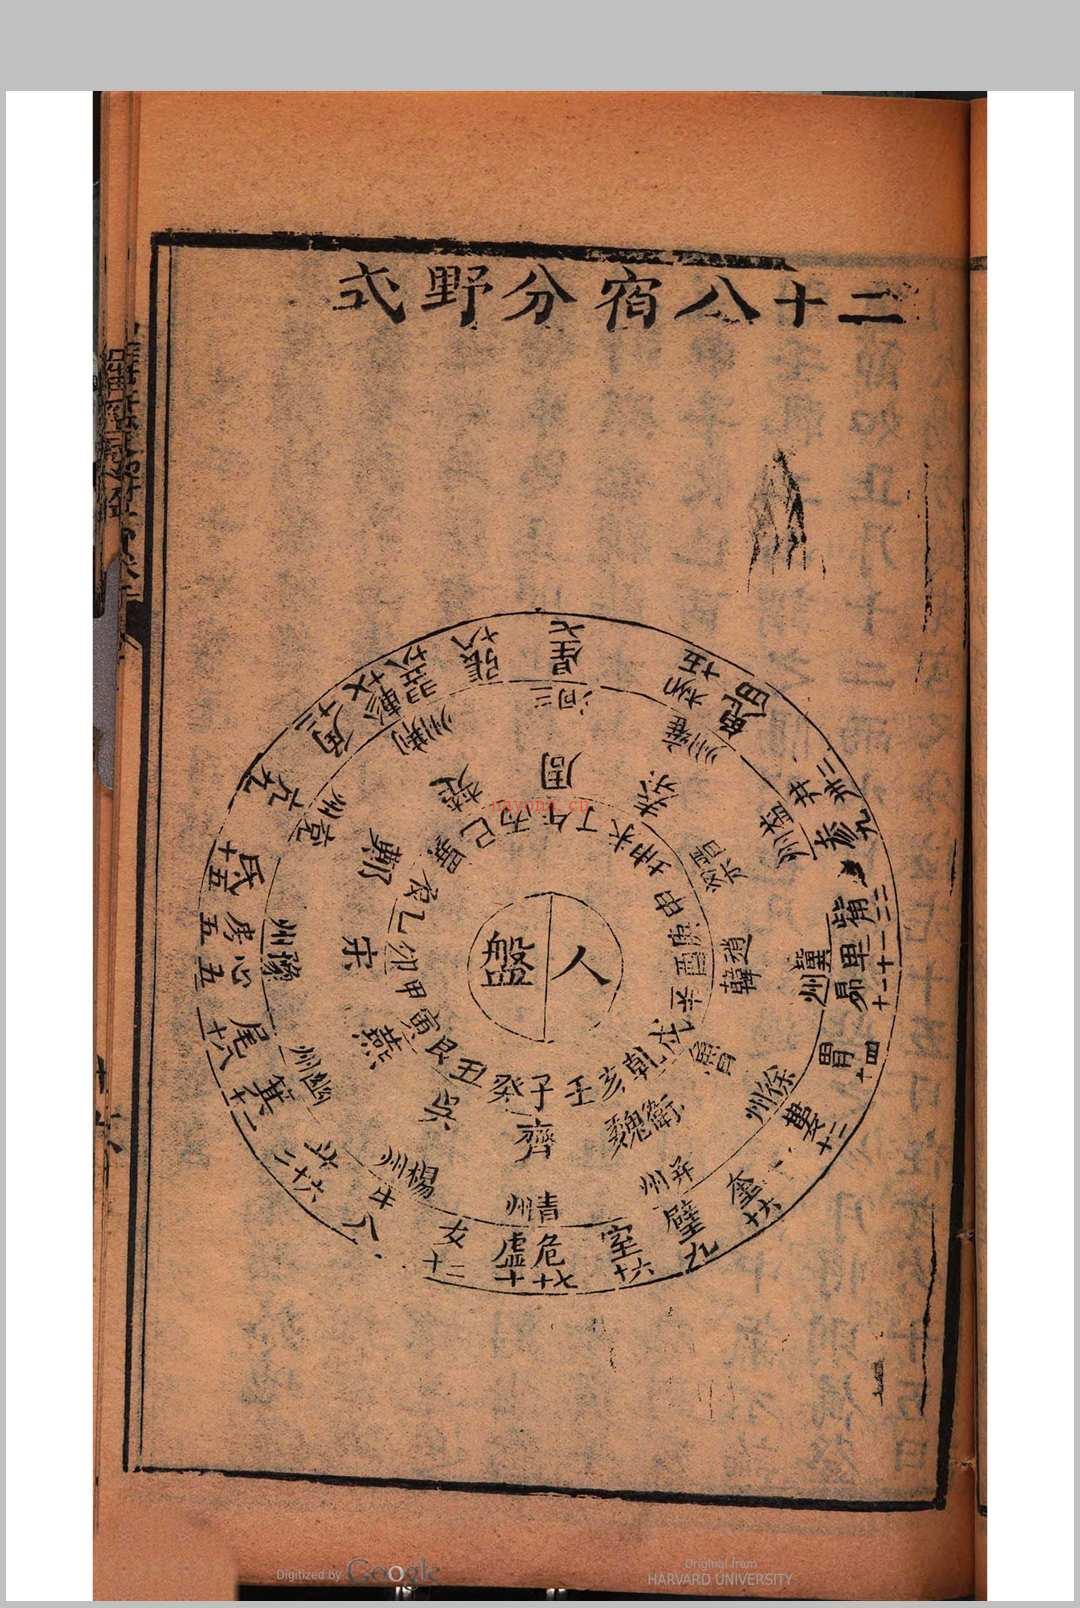 二十八宿分野式
人盤
子癸丑艮寅甲卯乙辰
巳丙午丁未坤申庚酉辛戌乾亥壬
齊
燕
宋
鄭
楚
周
秦
晉
趙
魏衛
青州
楊州
幽州
豫州
兗州
荊州
三河
雍州
益州
州
徐州
并州
虛十
危十七
室十六
壁九
奎十六
婁十二
胃十四
昴十一
畢
觜
參九
井
鬼四
柳十五
星七
張十八
翌十八
軫十七
角十二
亢九
氐十五
房五
心五
尾十八
箕十二
斗二十六
牛八
女十二
nayona.cn
Digitized by Google
Original from
HARVARD UNIVERSITY